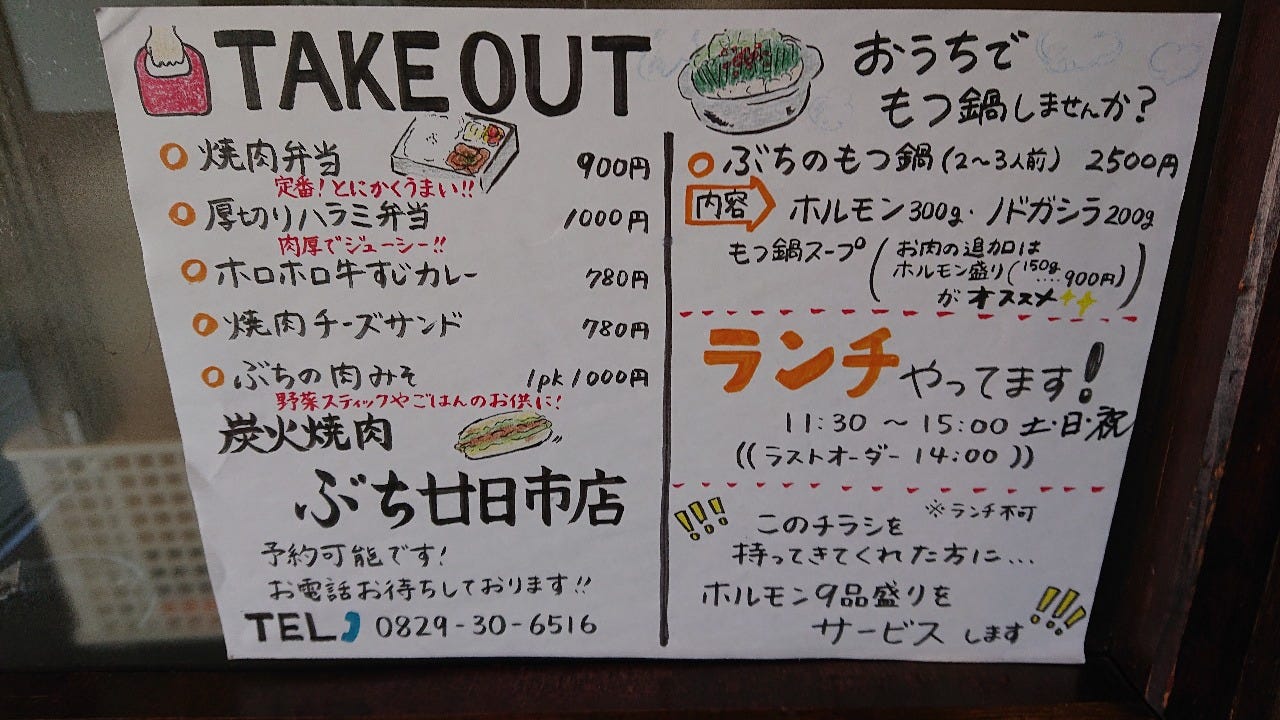 TAKE OUT
焼肉弁当 900円
定番!とにかくうまい!!
厚切りハラミ弁当 1000円
肉厚でジューシー!!
ホロホロ牛すじカレー 780円
焼肉チーズサンド 780円
ぶちの肉みそ 1pk 1000円
野菜スティックやごはんのお供に!
炭火焼肉
ぶち廿日市店
予約可能です!
お電話お待ちしております!!
TEL 0829-30-6516
おうちで
もつ鍋しませんか?
ぶちのもつ鍋(2〜3人前) 2500円
内容 ホルモン300g・ノドガシラ200g
もつ鍋スープ(お肉の追加は
ホルモン盛り(150g....900円)
がオススメ)
ランチやってます!
11:30 〜 15:00 土・日・祝
((ラストオーダー 14:00))
!!! このチラシを ※ランチ不可
持ってきてくれた方に...
ホルモン9品盛りを
サービスします !!!